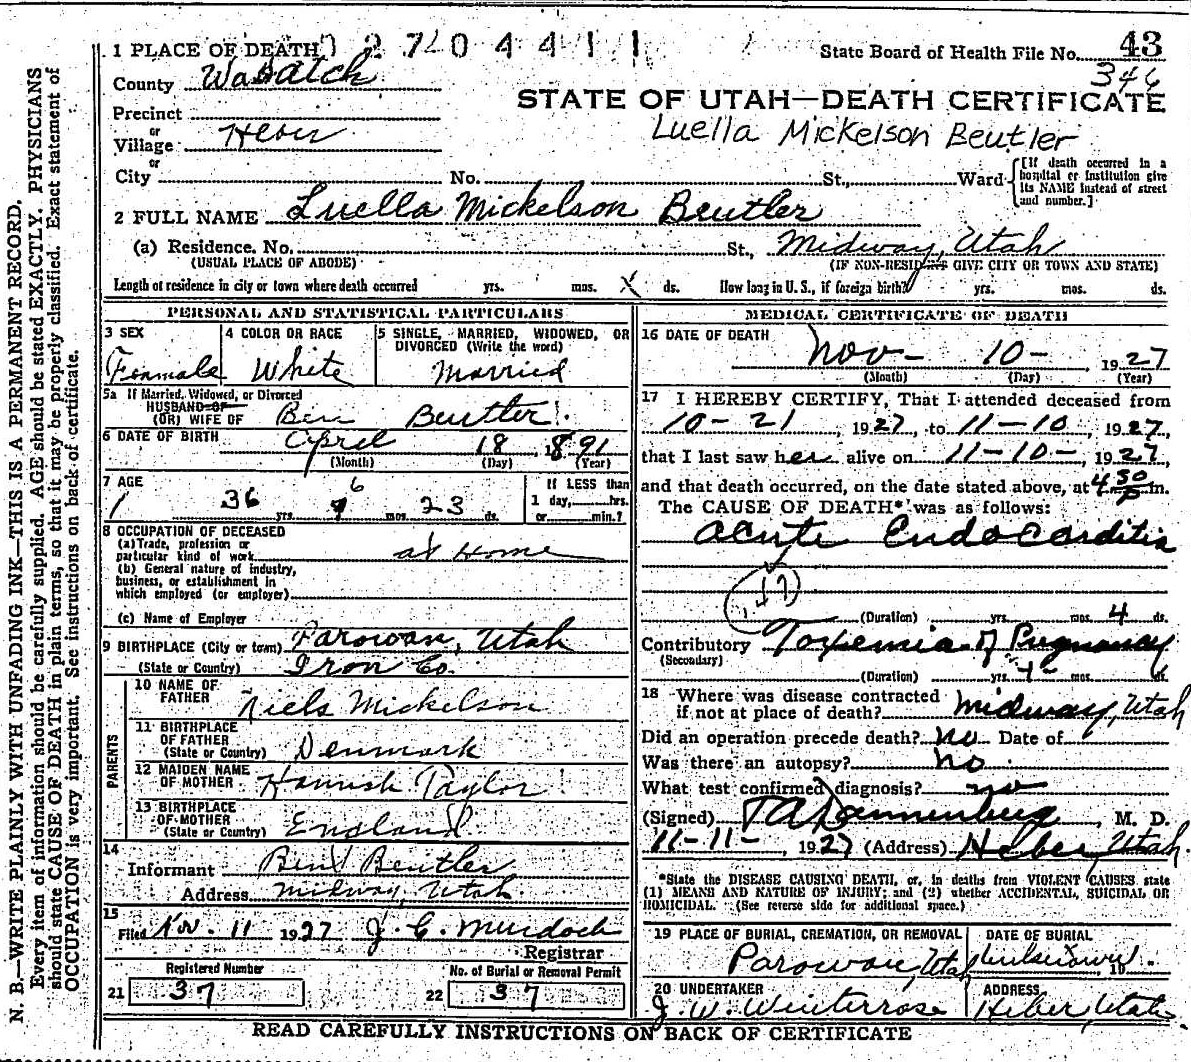 1 PLACE OF DEATH 0 2 7 0 4 4 1 1
State Board of Health File No. 43
County Wasatch
346
STATE OF UTAH—DEATH CERTIFICATE
Precinct
or
Village Heber
Luella Mickelson Beutler
or
City No. St., Ward
[If death occurred in a hospital or institution give its NAME instead of street and number.]
2 FULL NAME Luella Mickelson Beutler
(a) Residence. No. St., Midway, Utah
(USUAL PLACE OF ABODE) (IF NON-RESIDENT GIVE CITY OR TOWN AND STATE)
Length of residence in city or town where death occurred yrs. mos. X ds. How long in U. S., if foreign birth? yrs. mos. ds.
PERSONAL AND STATISTICAL PARTICULARS
3 SEX
Feamale
4 COLOR OR RACE
White
5 SINGLE, MARRIED, WIDOWED, OR DIVORCED (Write the word)
Married
5a If Married, Widowed, or Divorced
HUSBAND OF
(OR) WIFE OF Ben Beutler
6 DATE OF BIRTH April 18 1891
(Month) (Day) (Year)
7 AGE
36 yrs. 6 mos. 23 ds.
If LESS than
1 day, hrs.
or min.?
8 OCCUPATION OF DECEASED
(a) Trade, profession or
particular kind of work at Home
(b) General nature of industry,
business, or establishment in
which employed (or employer)
(c) Name of Employer
9 BIRTHPLACE (City or town) Parowan, Utah
(State or Country) Iron Co.
PARENTS
10 NAME OF
FATHER Niels Mickelson
11 BIRTHPLACE
OF FATHER
(State or Country) Denmark
12 MAIDEN NAME
OF MOTHER Hannah Taylor
13 BIRTHPLACE
OF MOTHER
(State or Country) England
14
Informant Ben Beutler
Address Midway, Utah
15
Filed Nov. 11 1927 J. C. Murdoch
Registrar
Registered Number
21 37
No. of Burial or Removal Permit
22 37
MEDICAL CERTIFICATE OF DEATH
16 DATE OF DEATH
Nov- 10- 1927
(Month) (Day) (Year)
17 I HEREBY CERTIFY, That I attended deceased from
10-21, 1927, to 11-10, 1927,
that I last saw her alive on 11-10-, 1927,
and that death occurred, on the date stated above, at 4 30 P m.
The CAUSE OF DEATH* was as follows:
Acute Endocarditis
(Duration) yrs. mos. 4 ds.
Contributory Toxemia of Pregnancy
(Secondary)
(Duration) yrs. mos. ds.
18 Where was disease contracted
if not at place of death? Midway, Utah
Did an operation precede death? no Date of
Was there an autopsy? no
What test confirmed diagnosis? no
(Signed) T A Dannenberg, M. D.
11-11-, 1927 (Address) Heber, Utah.
*State the DISEASE CAUSING DEATH, or, in deaths from VIOLENT CAUSES, state
(1) MEANS AND NATURE OF INJURY; and (2) whether ACCIDENTAL, SUICIDAL OR
HOMICIDAL. (See reverse side for additional space.)
19 PLACE OF BURIAL, CREMATION, OR REMOVAL
Parowan, Utah
DATE OF BURIAL
19
20 UNDERTAKER
J. W. Winterrose
ADDRESS
Heber, Utah
READ CAREFULLY INSTRUCTIONS ON BACK OF CERTIFICATE
N. B.—WRITE PLAINLY WITH UNFADING INK—THIS IS A PERMANENT RECORD.
Every item of information should be carefully supplied. AGE should be stated EXACTLY. PHYSICIANS
should state CAUSE OF DEATH in plain terms, so that it may be properly classified. Exact statement of
OCCUPATION is very important. See instructions on back of certificate.